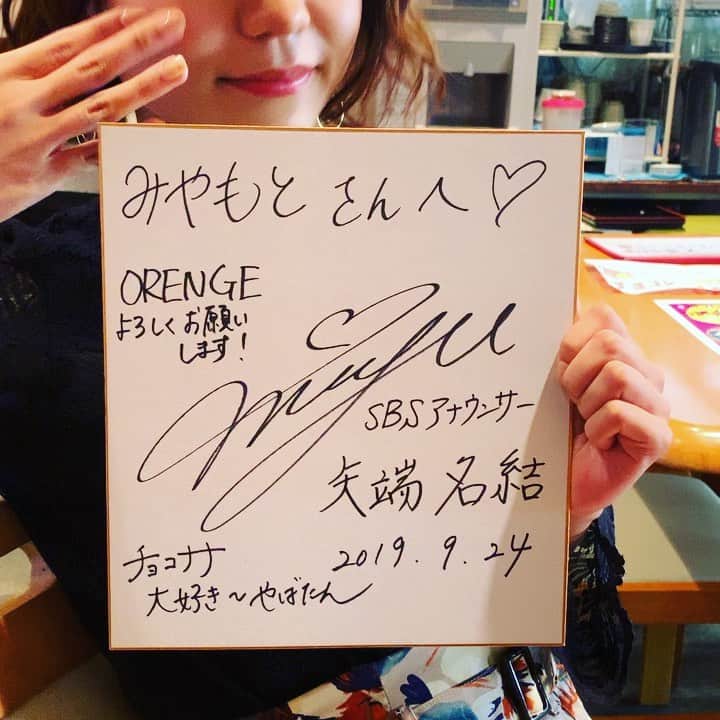 みやもとさんへ♡
ORENGE
よろしくお願い
します!
miyu
SBSアナウンサー
矢端 名結
2019.9.24
チョコナナ
大好き〜やばたん